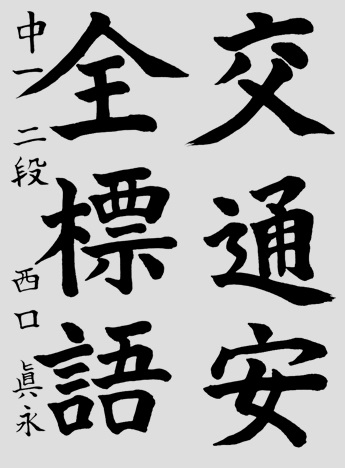 交通安
全標語
中一 二段 西口 眞永